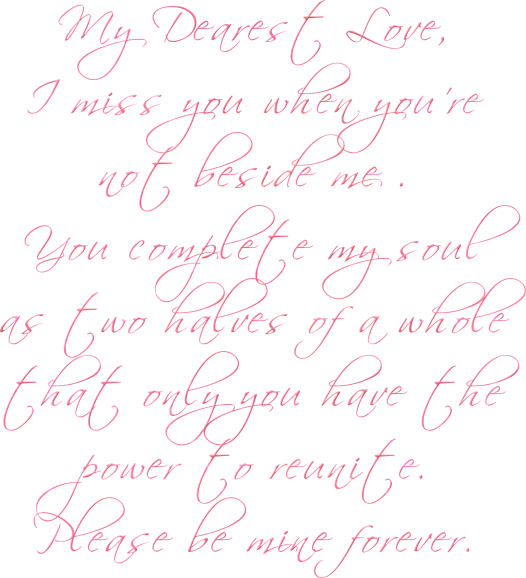 My Dearest Love,
I miss you when you're
not beside me .
You complete my soul
as two halves of a whole
that only you have the
power to reunite.
Please be mine forever.